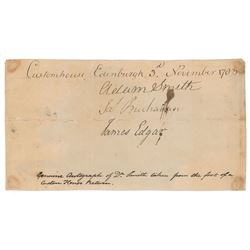 Customhouse, Edinburgh, 3d. November 178
Adam Smith
Jas. Buchanan
James Edgar
Genuine Autograph of Dr. Smith taken from the foot of a
Custom House Return.